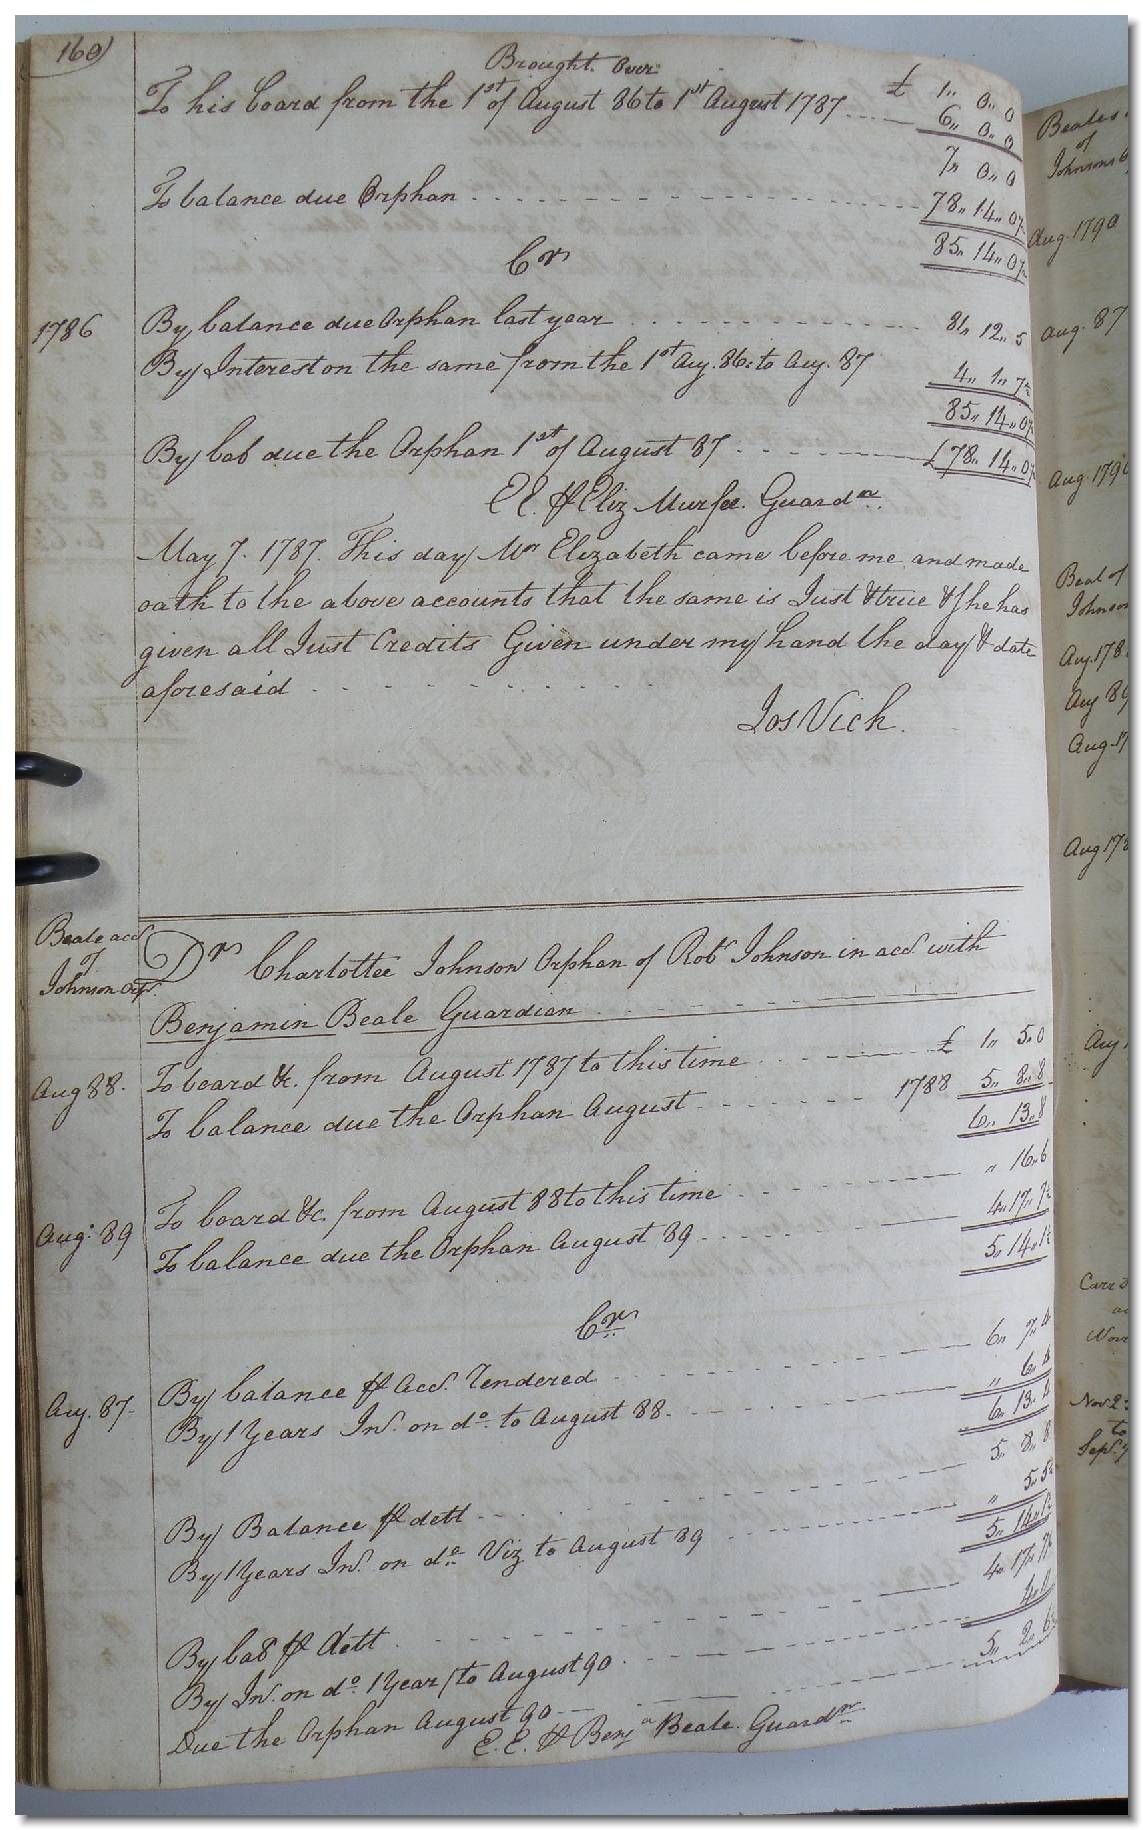 160
Brought Over £ 1,, 0,, 0
To his board from the 1st of August 86 to 1st August 1787 6,, 0,, 0
7,, 0,, 0
To balance due Orphan 78,, 14,, 0½
85,, 14,, 0½
Cr
1786 By balance due Orphan last year 81,, 12,, 5
By Interest on the same from the 1st Aug. 86: to Aug. 87 4,, 1,, 7½
85,, 14,, 0½
By bal due the Orphan 1st of August 87 £78,, 14,, 0½
E E. ⅌ Eliz Murfee. Guardn.
May 7. 1787. This day Mrs Elizabeth came before me and made
oath to the above accounts that the same is Just & true & She has
given all Just Credits Given under my hand the day & date
aforesaid
Jos Vick.
Beale acct
of
Johnson Orp.
Dr Charlottee Johnson Orphan of Robt Johnson in acct with
Benjamin Beale Guardian
Aug 88. To board &c. from August 1787 to this time £ 1,, 5,, 0
To balance due the Orphan August 1788 5,, 8,, 8
6,, 13,, 8
Aug: 89 To board &c from August 88 to this time ,, 16,, 6
To balance due the Orphan August 89 4,, 17,, 7½
5,, 14,, 1½
Cr
Aug. 87. By balance ⅌ acct. Rendered 6,, 7,, 4
By 1 Years Int. on do. to August 88. ,, 6,, 4
6,, 13,, 8
By Balance ⅌ dett 5,, 8,, 8
By 1 Years Int. on do. Viz to August 89 ,, 5,, 5½
5,, 14,, 1½
By bal ⅌ dett 4,, 17,, 7½
By Int. on do. 1 Year to August 90
Due the Orphan August 90 5,, 2,, 6½
E. E. ⅌ Benja Beale. Guardn
Beales
of
Johnsons
Aug. 1790
Aug. 87
Aug. 179
Beal of
Johnson
Aug. 178
Aug 89
Aug. 17
Aug 17
Aug.
Nov 2
to
Sep.